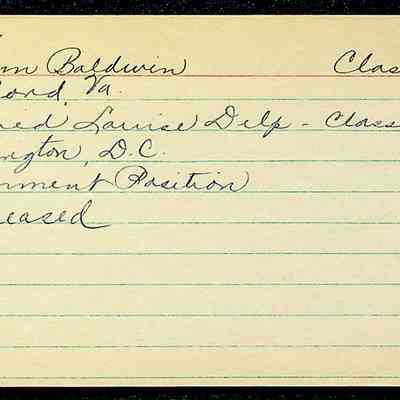 nn Baldwin Clas
ford, Va.
ried Louise Delp - Class
ington, D.C.
rnment Position
ceased